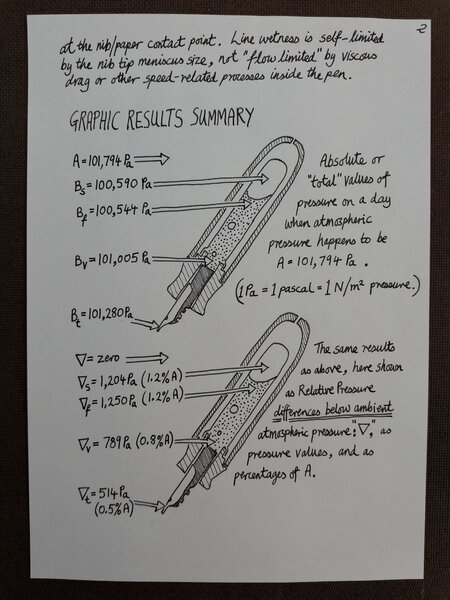 2
at the nib/paper contact point. Line wetness is self-limited
by the nib tip meniscus size, not "flow limited" by viscous
drag or other speed-related processes inside the pen.
GRAPHIC RESULTS SUMMARY
A = 101,794 Pa
Bs = 100,590 Pa
Bf = 100,544 Pa
Bv = 101,005 Pa
Bt = 101,280 Pa
Absolute or
"total" values of
pressure on a day
when atmospheric
pressure happens to be
A = 101,794 Pa.
(1 Pa = 1 pascal = 1 N/m² pressure.)
∇ = zero
∇s = 1,204 Pa (1.2% A)
∇f = 1,250 Pa (1.2% A)
∇v = 789 Pa (0.8% A)
∇t = 514 Pa
(0.5% A)
The same results
as above, here shown
as Relative Pressure
differences below ambient
atmospheric pressure: "∇," as
pressure values, and as
percentages of A.